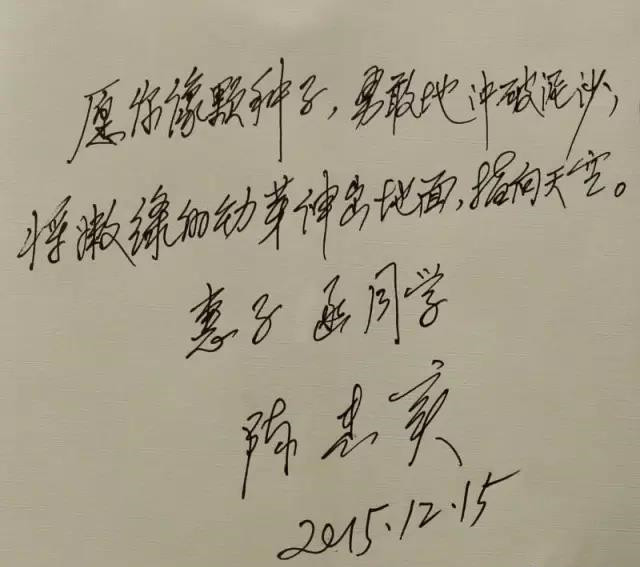 愿你像颗种子，勇敢地冲破泥沙，
将嫩绿的幼芽伸出地面，指向天空。
惠子 同学
陈忠实
2015.12.15